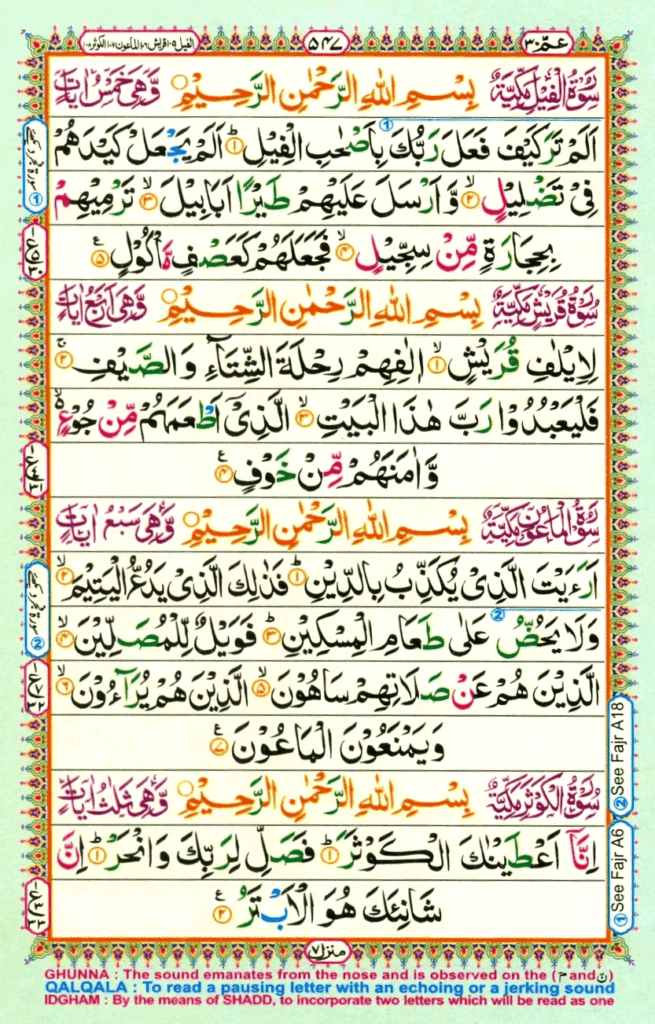 عمّ ٣٠
٥٤٧
الفيل ١٠٥ قريش ١٠٦ الماعون ١٠٧ الكوثر ١٠٨
سُوْرَةُ الْفِيْلِ مَكِّيَّةٌ بِسْمِ اللهِ الرَّحْمٰنِ الرَّحِيْمِ وَّهِىَ خَمْسُ اٰيَاتٍ
اَلَمْ تَرَ كَيْفَ فَعَلَ رَبُّكَ بِاَصْحٰبِ الْفِيْلِ ۝١ اَلَمْ يَجْعَلْ كَيْدَهُمْ
فِىْ تَضْلِيْلٍ ۝٢ وَّاَرْسَلَ عَلَيْهِمْ طَيْرًا اَبَابِيْلَ ۝٣ تَرْمِيْهِمْ
بِحِجَارَةٍ مِّنْ سِجِّيْلٍ ۝٤ فَجَعَلَهُمْ كَعَصْفٍ مَّاْكُوْلٍ ۝٥
سُوْرَةُ قُرَيْشٍ مَكِّيَّةٌ بِسْمِ اللهِ الرَّحْمٰنِ الرَّحِيْمِ وَّهِىَ اَرْبَعُ اٰيَاتٍ
لِاِيْلٰفِ قُرَيْشٍ ۝١ اٖلٰفِهِمْ رِحْلَةَ الشِّتَآءِ وَالصَّيْفِ ۝٢
فَلْيَعْبُدُوْا رَبَّ هٰذَا الْبَيْتِ ۝٣ الَّذِىْٓ اَطْعَمَهُمْ مِّنْ جُوْعٍ
وَّاٰمَنَهُمْ مِّنْ خَوْفٍ ۝٤
سُوْرَةُ الْمَاعُوْنِ مَكِّيَّةٌ بِسْمِ اللهِ الرَّحْمٰنِ الرَّحِيْمِ وَّهِىَ سَبْعُ اٰيَاتٍ
اَرَءَيْتَ الَّذِىْ يُكَذِّبُ بِالدِّيْنِ ۝١ فَذٰلِكَ الَّذِىْ يَدُعُّ الْيَتِيْمَ ۝٢
وَلَا يَحُضُّ عَلٰى طَعَامِ الْمِسْكِيْنِ ۝٣ فَوَيْلٌ لِّلْمُصَلِّيْنَ ۝٤
الَّذِيْنَ هُمْ عَنْ صَلَاتِهِمْ سَاهُوْنَ ۝٥ الَّذِيْنَ هُمْ يُرَآءُوْنَ ۝٦
وَيَمْنَعُوْنَ الْمَاعُوْنَ ۝٧
سُوْرَةُ الْكَوْثَرِ مَكِّيَّةٌ بِسْمِ اللهِ الرَّحْمٰنِ الرَّحِيْمِ وَّهِىَ ثَلٰثُ اٰيَاتٍ
اِنَّآ اَعْطَيْنٰكَ الْكَوْثَرَ ۝١ فَصَلِّ لِرَبِّكَ وَانْحَرْ ۝٢ اِنَّ
شَانِئَكَ هُوَ الْاَبْتَرُ ۝٣
① See Fajr A6 ② See Fajr A18
منزل ٧
GHUNNA : The sound emanates from the nose and is observed on the (ن and م)
QALQALA : To read a pausing letter with an echoing or a jerking sound
IDGHAM : By the means of SHADD, to incorporate two letters which will be read as one